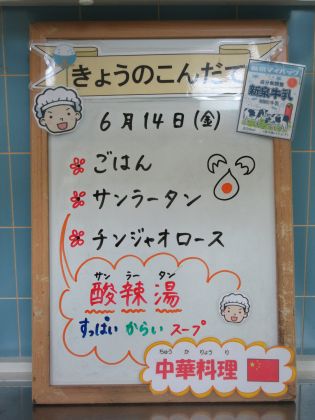 きょうのこんだて
6月14日(金)
ごはん
サンラータン
チンジャオロース
サン ラー タン
酸辣湯
すっぱい からい スープ
ちゅう か りょう り
中華料理
新泉牛乳